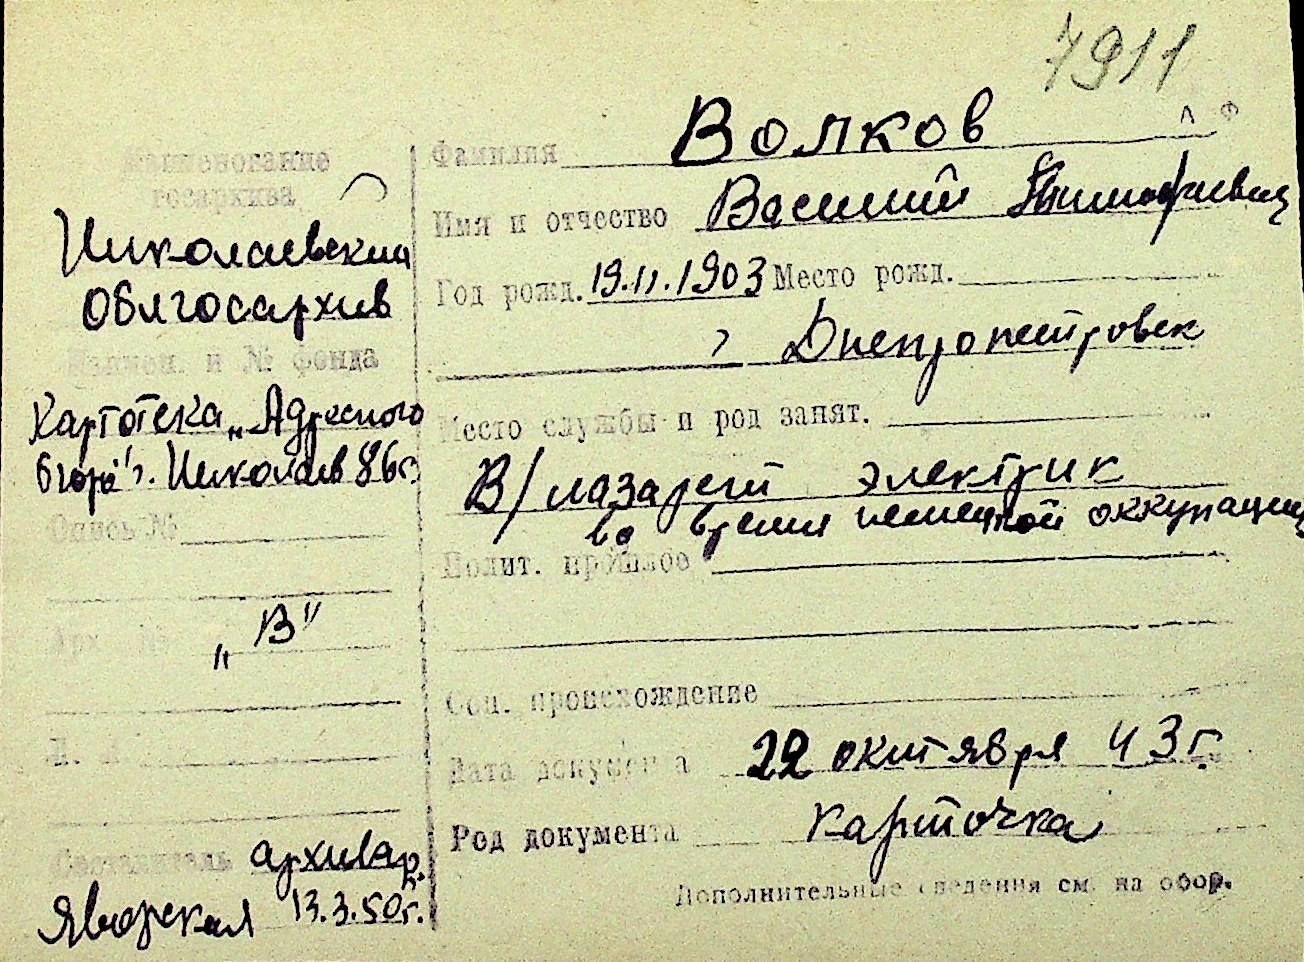 7911
Наименование
госархива
Николаевский
Облгосархив
Наимен. и № фонда
Картотека „Адресного
бюро" г. Николаев 86г.
Опись №
„В"
Л. л.
Составитель архивар.
Яворская 13.3.50г.
Фамилия Волков
Имя и отчество Василий Тимофеевич
Год рожд. 19.11.1903 Место рожд.
Днепропетровск
Место службы и род занят.
В/лазарет электрик
во время немецкой оккупации
Полит. прошлое
Соц. происхождение
Дата документа 22 октября 43г.
Род документа карточка
Дополнительные сведения см. на обор.